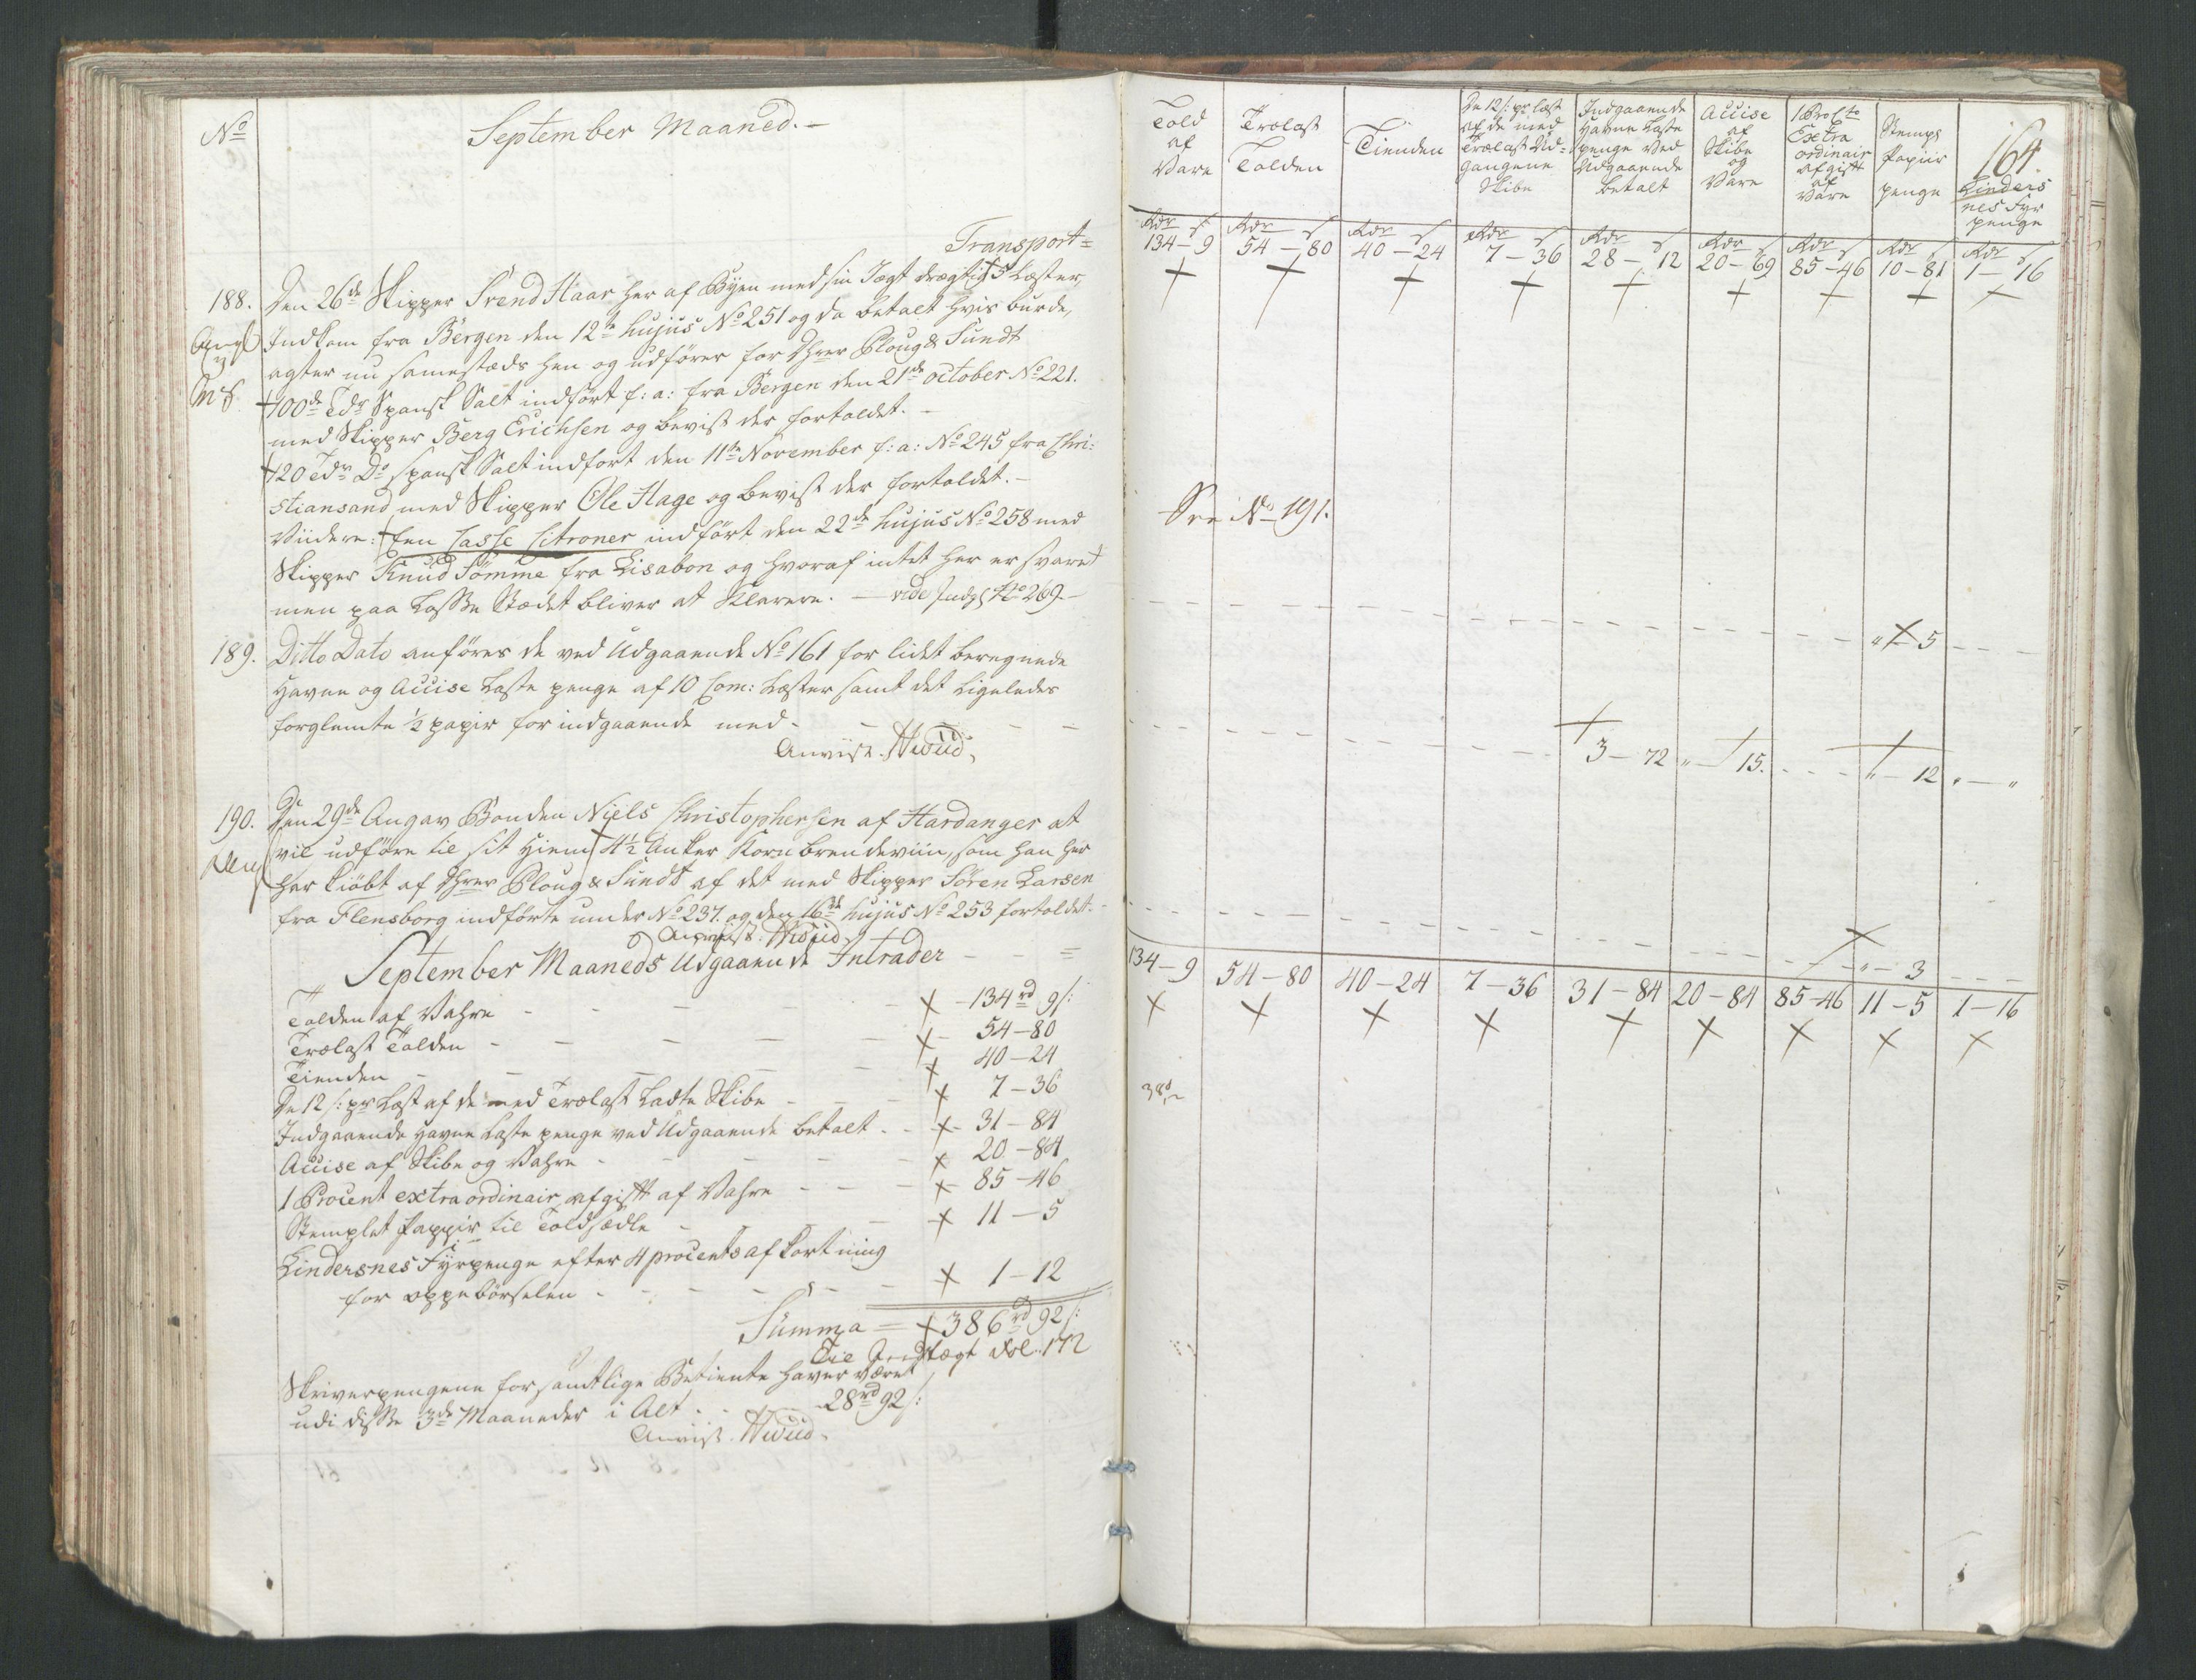 No
September Maaned.-
Transport=
188. Den 26de Skipper Svend Haar her af Byen med sin Jagt drægtig 5 Læster,
Indkom fra Bergen den 12te hujus No 251 og da betalt hvis burde,
agter nu sammestæds hen og udfører for Dhrer Ploug & Sundt
100de Tdr Spansk Salt indført f: a: fra Bergen den 21de October No 221.
med Skipper Berg Erichsen og bevist der fortoldet. -
120 Tdr Do Spansk Salt indført den 11te November f: a: No 245 fra Chri:
stiansand med Skipper Ole Hage og bevist der fortoldet. -
Viidere: Een Casse Citroner indført den 22de hujus No 258 med
Skipper Knud Sömme fra Lisabon og hvoraf intet her er svaret
men paa Losse Stædet bliver at Klarere. - vide Indg No 269. -
189. Ditto Dato anføres de ved Udgaaende No 161 for lidet beregnede
Havne og Accise Læste penge af 10 Com: Læster samt det ligeledes
forglemte ½ papir for indgaaende med -
Anviist.
190. Den 29de Angav Bonden Niels Christophersen af Hardanger at
vil udføre til sit Hiem 4½ Anker Korn brendeviin, som han her
har kiöbt af Dhrer Ploug & Sundt af det med Skipper Sören Larsen
fra Flensborg indførte under No 237. og den 16de hujus No 253 fortoldet. -
Anviist.
September Maaneds Udgaaende Intrader - - =
Tolden af Vahre - - - - 134rd 9s:
Trælast Tolden - - - - 54-80
Tienden - - - - 40-24
De 12 s: pr Læst af de med Trælast Ladte Skibe - - 7-36
Indgaaende Havne Læste penge ved Udgaaende betalt - - 31-84
Accise af Skibe og Vahre - - - - 20-84
1 Procent extraordinair afgift af Vahre - - - 85-46
Stemplet Pappir til Toldsædle - - 11-5
Lindersnes Fyrpenge efter 4 procents afkortning
for oppebørselen - - - - - 1-12
Summa = 386rd 92s:
Til Indtægt Fol. 172
Skriverpengene for samtlige Betiente haver været
udi disse 3de Maaneder i Alt - - 28rd 92s:
Anviist.
164.
Told af Vare
Trælast Tolden
Tienden
De 12 s: pr Læst af de med Trælast Ud=gangene Skibe
Indgaaende Havne Læste penge ved Udgaaende betalt
Accise af Skibe og Vare
1 Pro Cto Extra ordinair afgift af Vare
Stempl Papiir penge
Linders nes Fyr penge
Rdr s Rdr s Rdr s Rdr s Rdr s Rdr s Rdr s Rdr s Rdr s
134-9 54-80 40-24 7-36 28-12 20-69 85-46 10-81 1-16
See No 191.
" 5
3-72 "-15. "-12 "-"
"-3
134-9 54-80 40-24 7-36 31-84 20-84 85-46 11-5 1-16